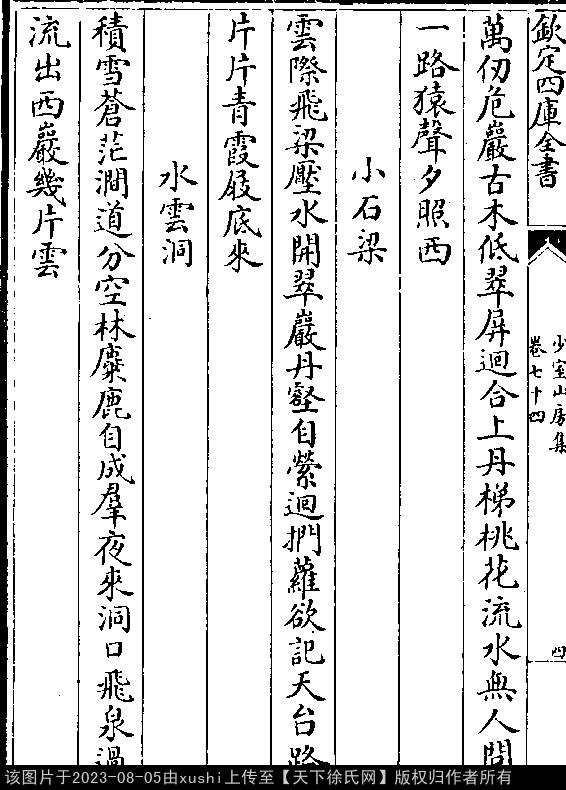 欽定四庫全書
少室山房集
卷七十四
四
萬仞危巖古木低翠屏迴合上丹梯桃花流水無人問
一路猿聲夕照西
小石梁
雲際飛梁壓水開翠巖丹壑自縈迴捫蘿欲記天台路
片片青霞屐底來
水雲洞
積雪蒼茫澗道分空林麋鹿自成羣夜來洞口飛泉過
流出西巖幾片雲
该图片于2023-08-05由xushi上传至【天下徐氏网】版权归作者所有